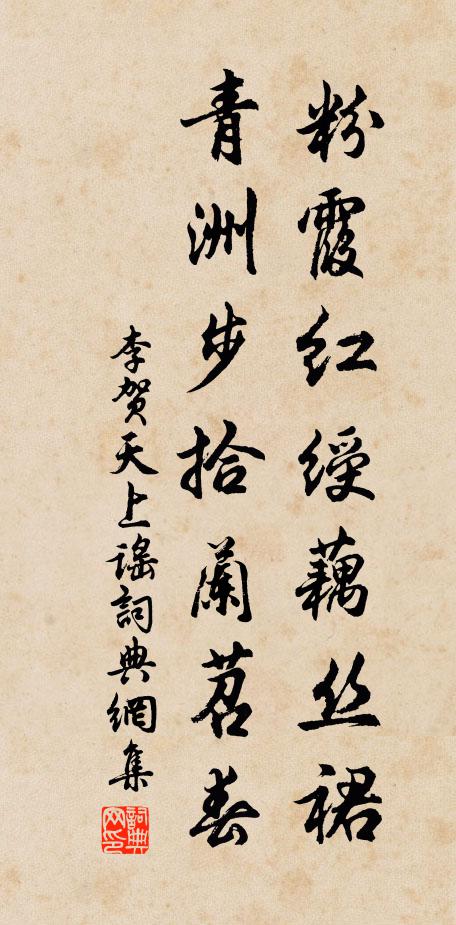 粉霞红绶藕丝裙
青洲步拾蘭苕春
李贺天上谣詞典網集
詞典网印